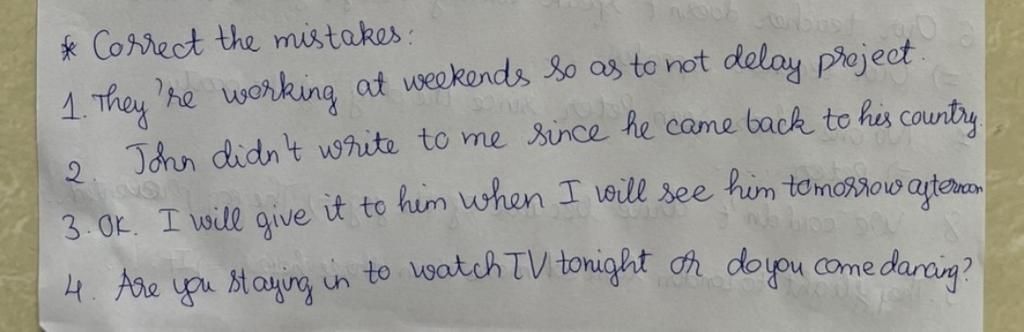 * Correct the mistakes:
1. They're working at weekends so as to not delay project.
2. John didn't write to me since he came back to his country.
3. OK. I will give it to him when I will see him tomorrow afternoon
4. Are you staying in to watch TV tonight or do you come dancing?